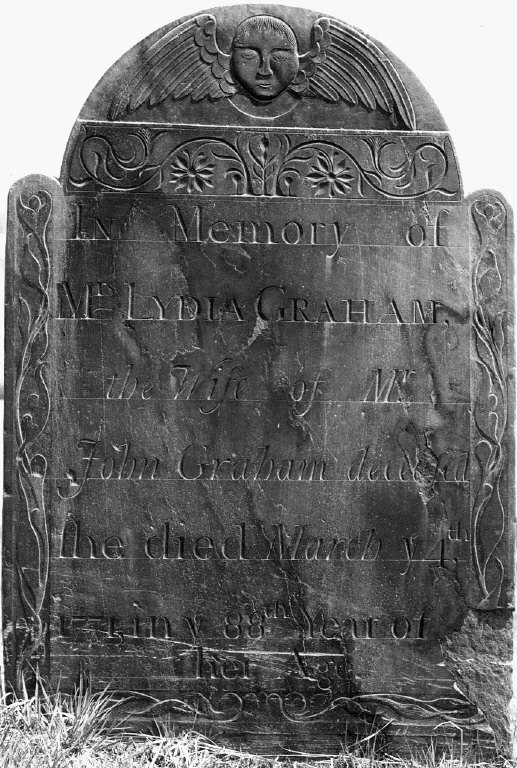 In Memory of
Mrs LYDIA GRAHAM,
the Wife of Mr
John Graham decesed
ſhe died March y 4th
1771, in y 88th Year of
her Age